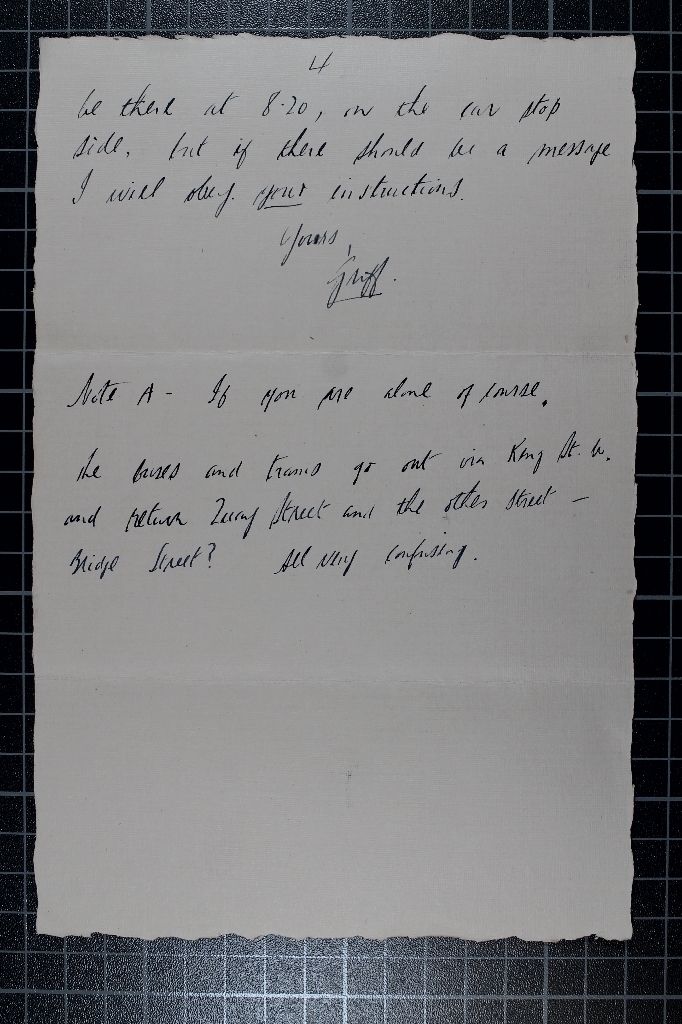 4
be there at 8.20, on the car stop
side, but if there should be a message
I will obey your instructions.
Yours,
Griff.
Note A - If you are alone of course.
The buses and trams go out via King St. W.
and return Street and the other street -
Bridge Street? All very confusing.